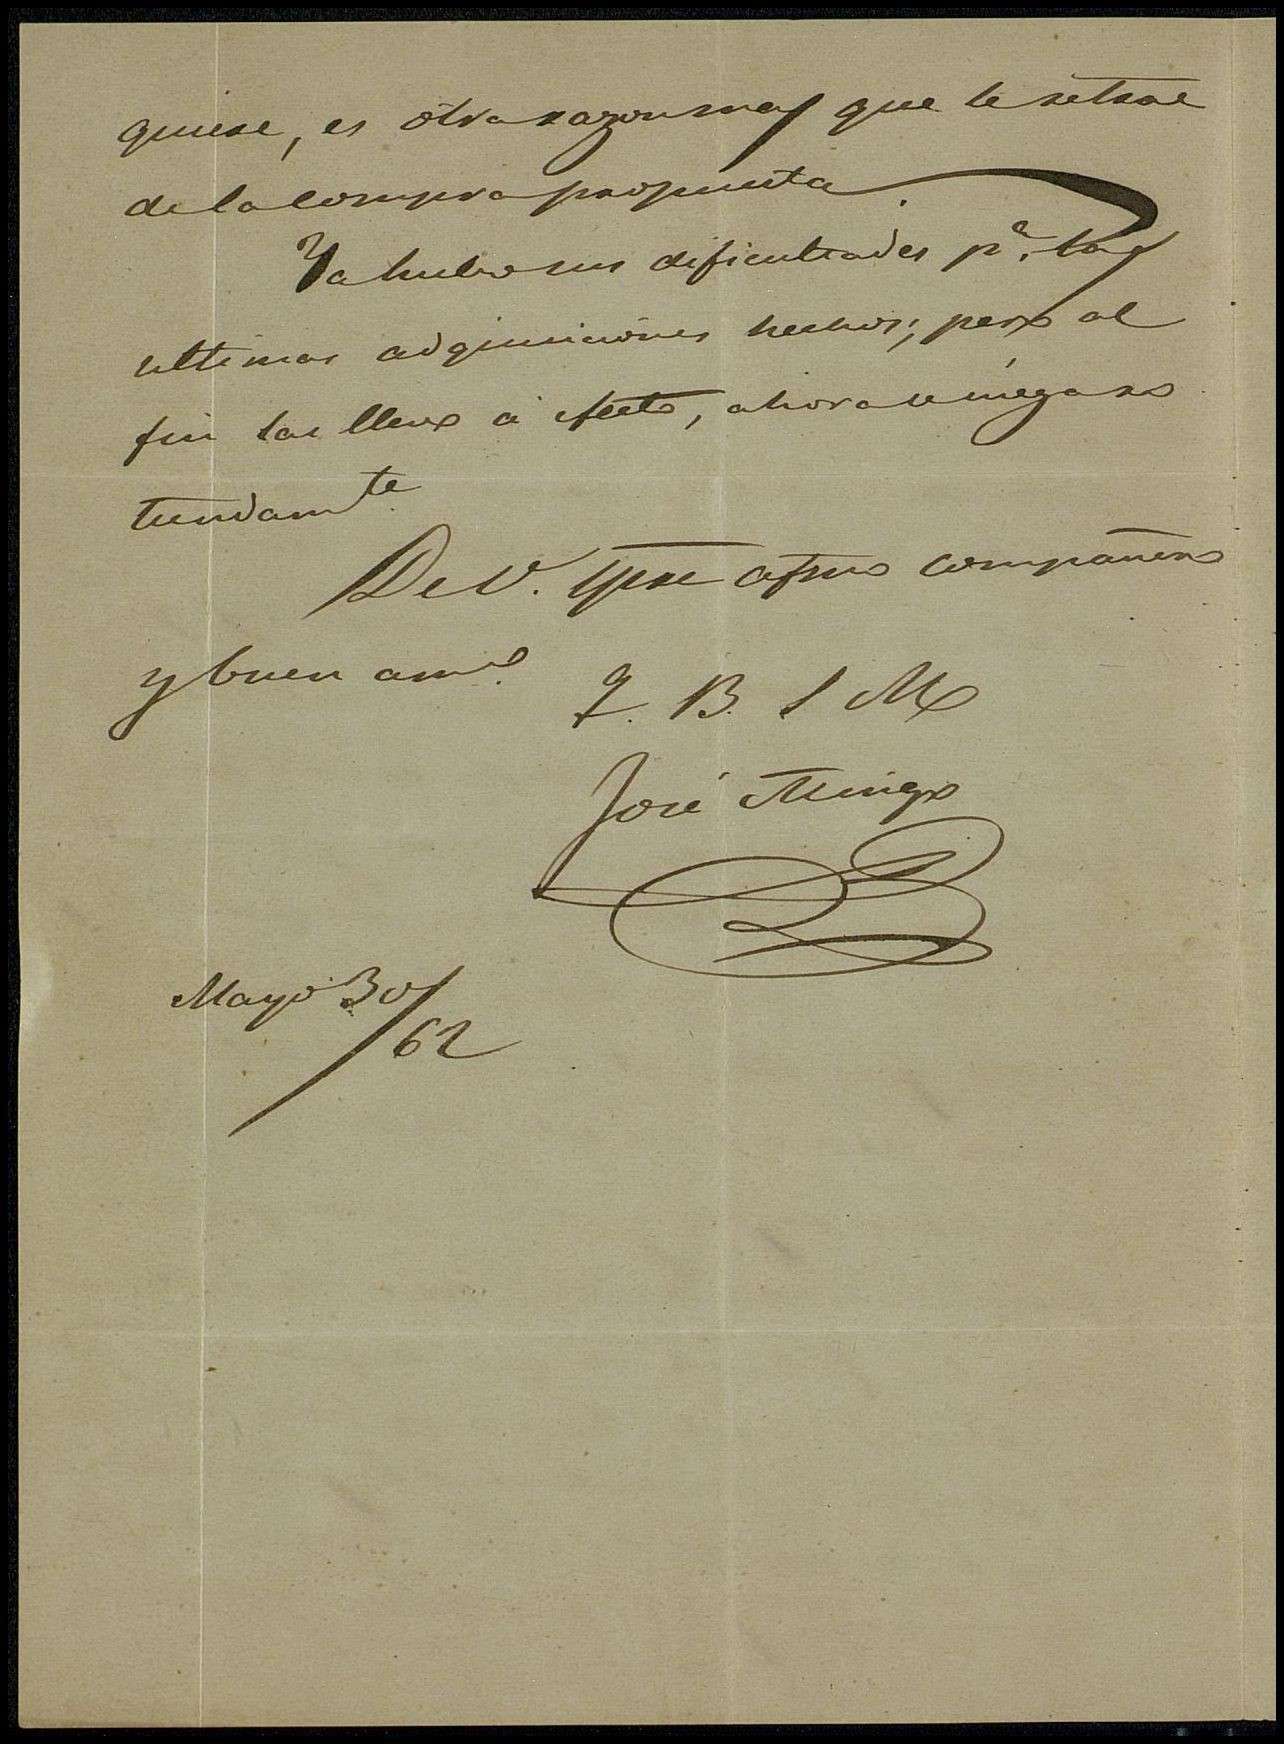 quiere, es otra razon mas que le retrae
de la compra propuesta.
Ya hubo sus dificultades pª. las
ultimas adquisiciones hechas; pero al
fin las llevo á efecto, ahora se niega ro
tundamte.
De V. spre afmo compañero
y buen amo.
Q. B. S M
José Mingo
Mayo 30/62